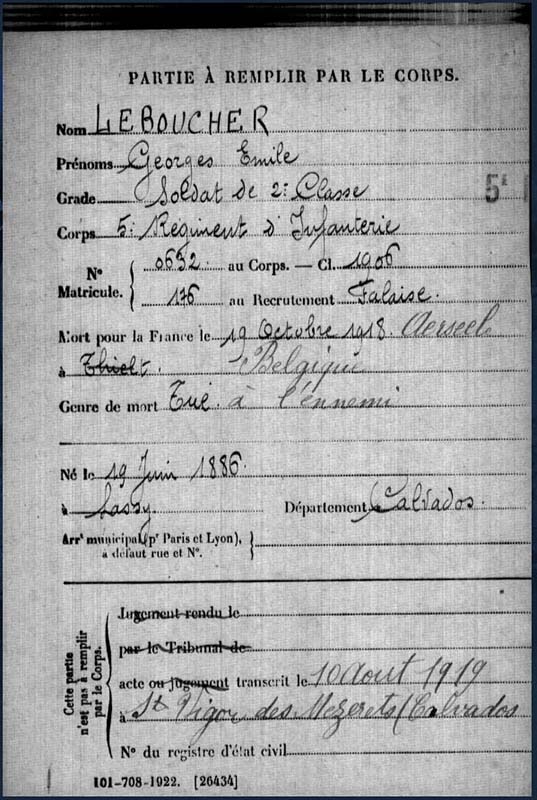 PARTIE À REMPLIR PAR LE CORPS.
Nom LEBOUCHER
Prénoms Georges Emile
Grade Soldat de 2e Classe
5e
Corps 5e Régiment d'Infanterie
N° Matricule. { 0652 au Corps. — Cl. 1906
176 au Recrutement Falaise.
Mort pour la France le 19 Octobre 1918. Aerseele
à Thielt. Belgique
Genre de mort Tué à l'ennemi
Né le 19 Juin 1886.
à Lassy. Département Calvados.
Arrt municipal (pr Paris et Lyon),
à défaut rue et N°.
Cette partie
n'est pas à remplir
par le Corps.
Jugement rendu le
par le Tribunal de
acte ou jugement transcrit le 10 Aout 1919
à St Vigor des Mezerets (Calvados
N° du registre d'état civil
101-708-1922. [26434]